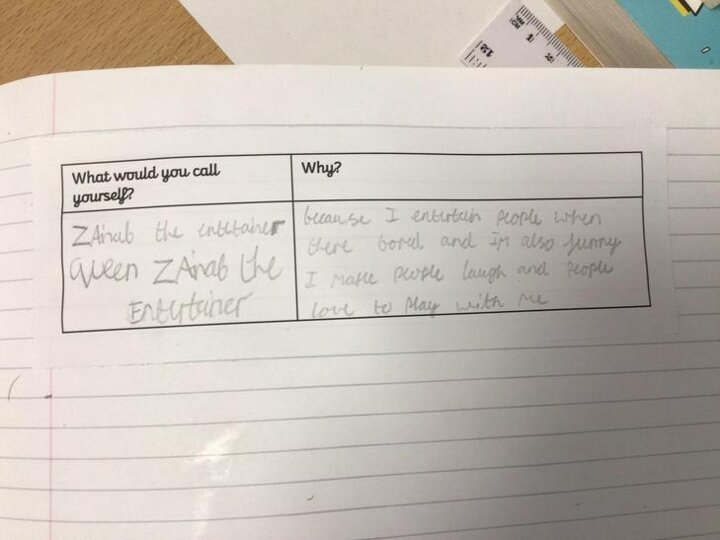 What would you call
yourself?
Why?
ZAinab the entertainer
Queen ZAinab the
Entertainer
because I entertain people when
there bored and I'm also funny
I make people laugh and people
love to play with me